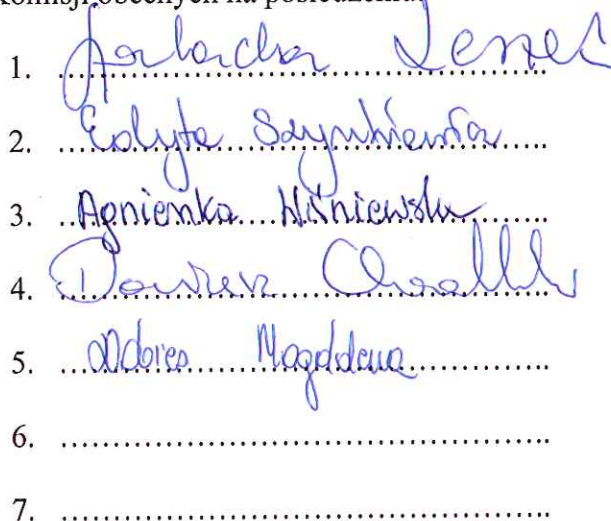 Komisji obecnych na posiedzeniu:
1. Leszek
2. Edyta Szynkiewicz
3. Agnieszka Wiśniewska
4. Dariusz
5. Magdalena
6.
7.